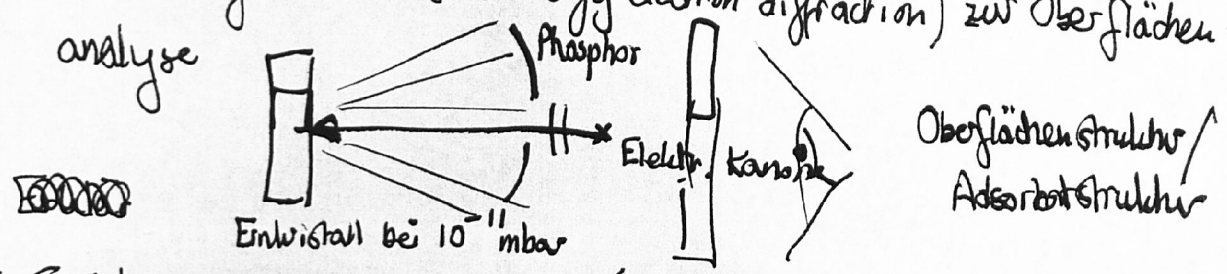 diffraction) zur Oberflächen
analyse
Phosphor
Elektr. Kanone
Oberflächenstruktur/
Adsorbatstruktur
Einkristall bei 10⁻¹¹ mbar